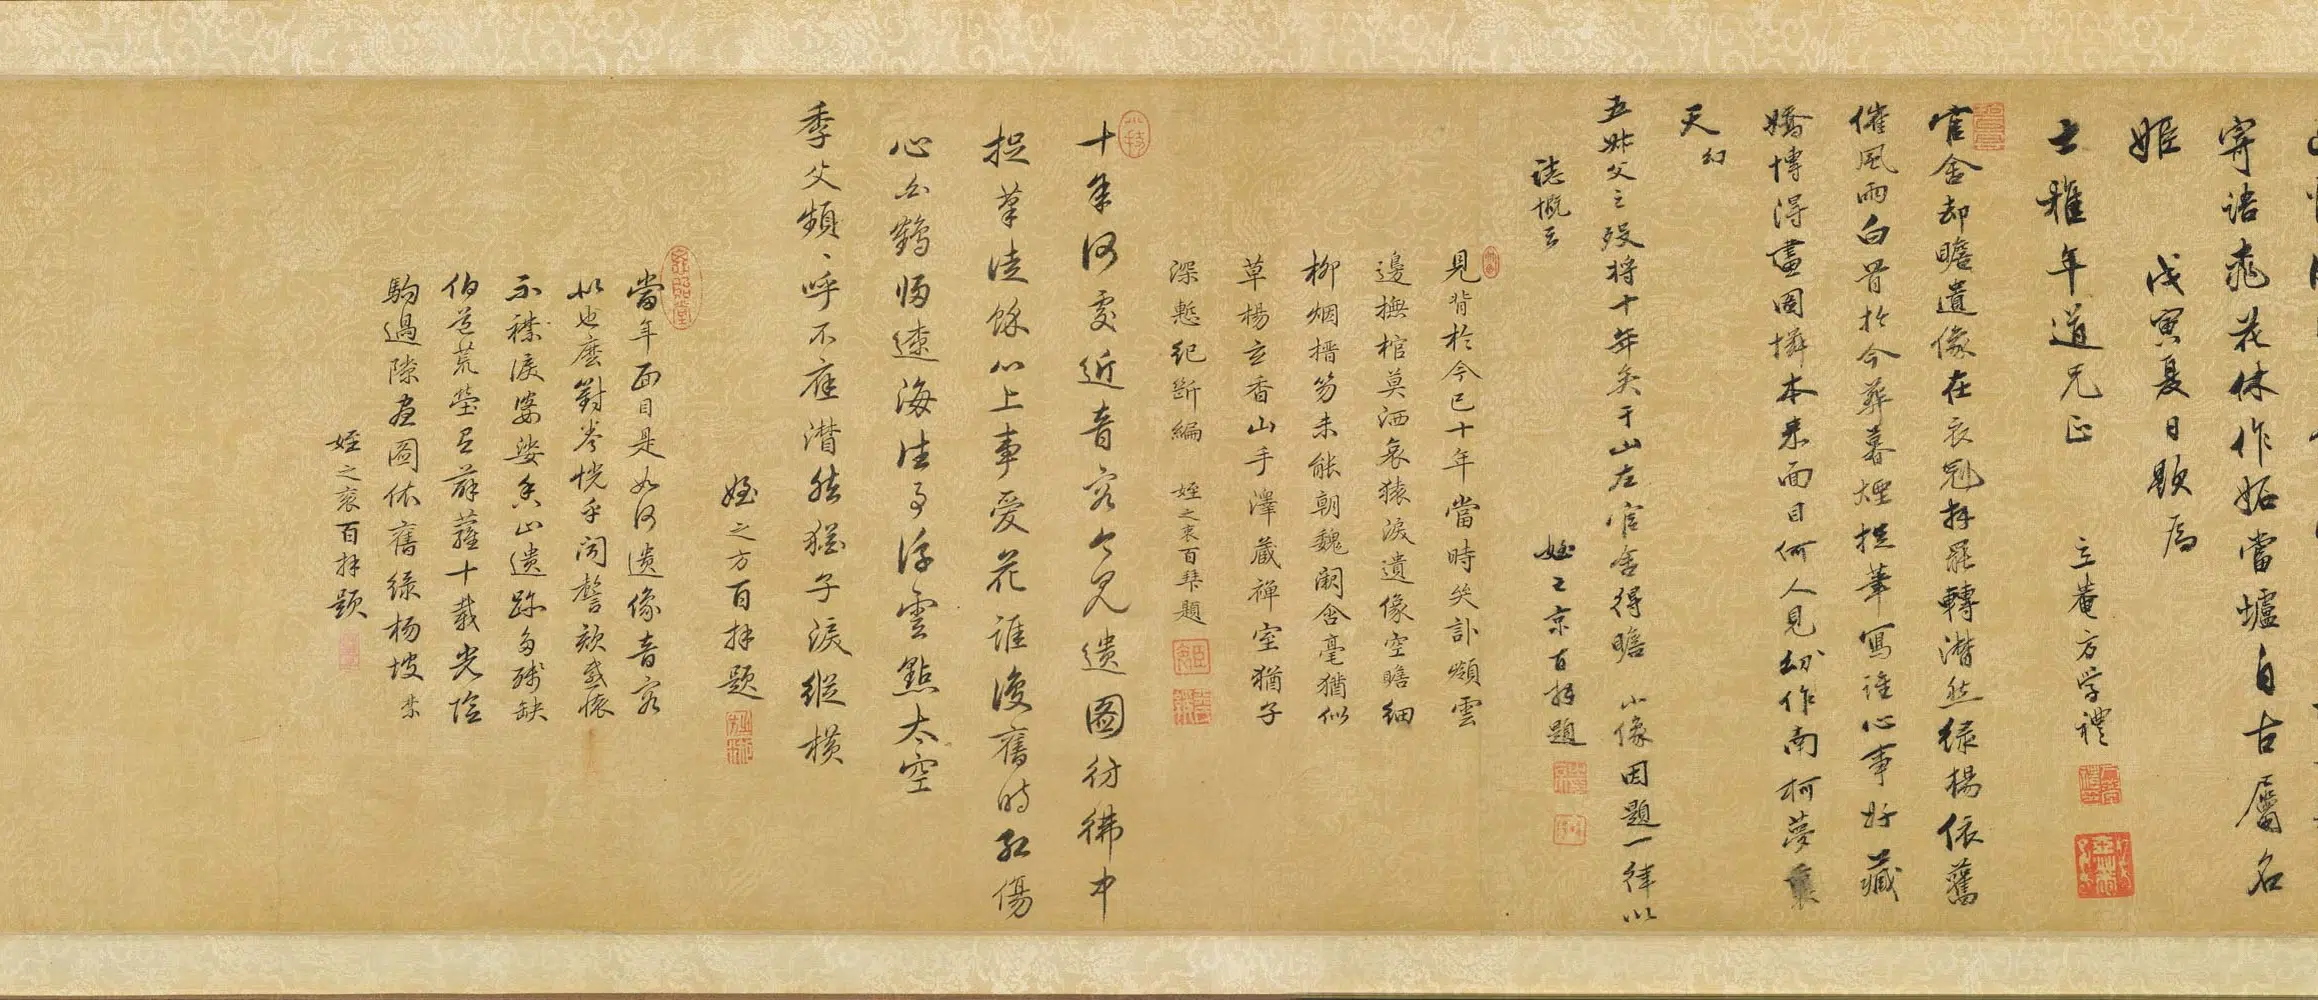 寄語飛花休作妬當壚自古屬名
姬 戊寅夏日題為
士雅年道兄正 立菴方學禮
官舍却瞻遺像在衣冠拜罷轉潸然緑楊依舊
催風雨白骨於今葬暮煙捉筆寫誰心事好藏
嬌博得畫圖憐本來面目何人見幼作南柯夢裏
天 幻
五姊父之歿将十年矣于山左官舍得瞻 小像因題一律以
誌慨云 姪之京百拜題
見背於今已十年當時笑訃嬪雲
邊撫棺莫洒哀猿淚遺像空瞻細
柳烟搢笏未能朝魏闕含毫猶似
草楊玄香山手澤藏禪室猶子
深慙紀斷編 姪之衷百拜題
十年何處近音容今見遺圖彷彿中
捉筆徒餘心上事愛花誰復舊時紅傷
心化鶴歸遼海往事浮雲點太空
季父頻、呼不應潸然猶子淚縱橫
姪之方百拜題
當年面目是如何遺像音容
似也麼對卷恍乎聞謦欬感懷
不禁淚婆娑香山遺跡多殘缺
伯道荒塋長薜蘿十載光陰
駒過隙畫圖依舊緑楊坡
姪之衷百拜題